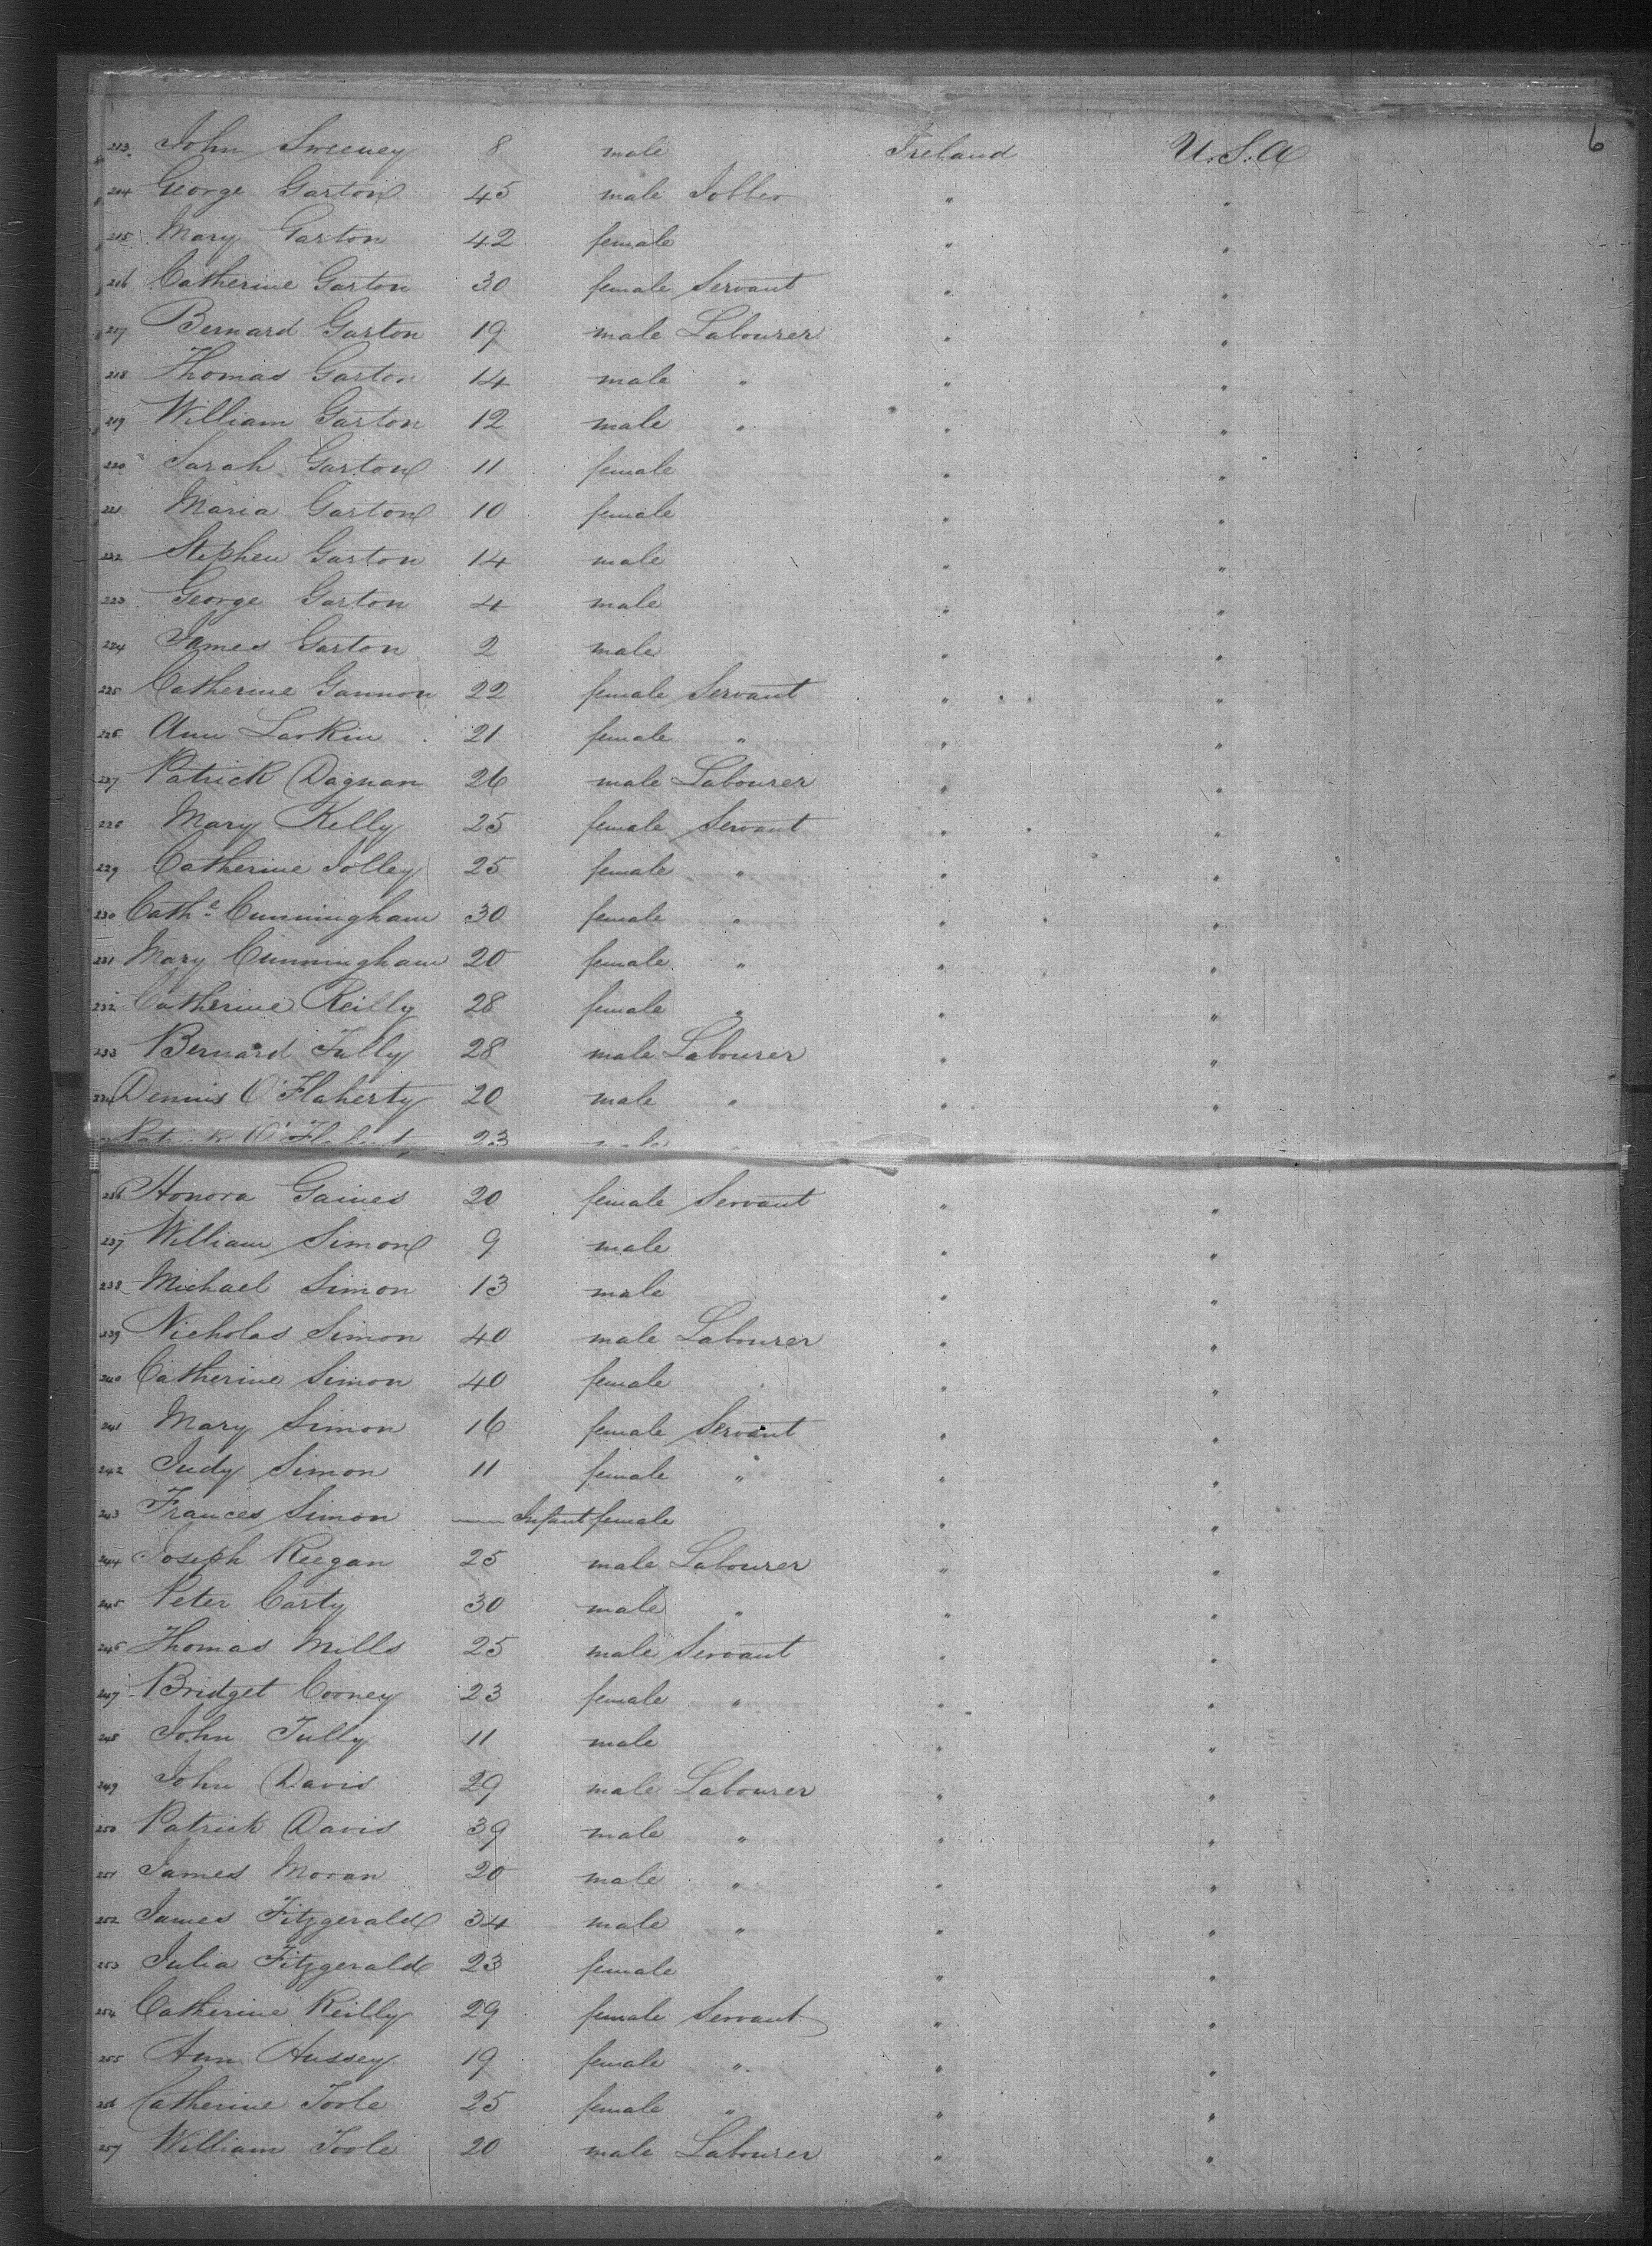 6
213 John Sweeney 8 male Ireland U.S.A
214 George Garton 45 male Jobber " "
215 Mary Garton 42 female " "
216 Catherine Garton 30 female Servant " "
217 Bernard Garton 19 male Labourer " "
218 Thomas Garton 14 male " " "
219 William Garton 12 male " " "
220 Sarah Garton 11 female " "
221 Maria Garton 10 female " "
222 Stephen Garton 14 male " "
223 George Garton 4 male " "
224 James Garton 2 male " "
225 Catherine Gannon 22 female Servant " "
226 Ann Larkin 21 female " " "
227 Patrick Dagnan 26 male Labourer " "
228 Mary Kelly 25 female Servant " "
229 Catherine Jolley 25 female " " "
230 Cathe Cunningham 30 female " " "
231 Mary Cunningham 20 female " " "
232 Catherine Reilly 28 female " " "
233 Bernard Tully 28 male Labourer " "
234 Dennis O'Flaherty 20 male " " "
23
236 Honora Gaines 20 female Servant " "
237 William Simon 9 male " "
238 Michael Simon 13 male " "
239 Nicholas Simon 40 male Labourer " "
240 Catherine Simon 40 female " "
241 Mary Simon 16 female Servant " "
242 Judy Simon 11 female " " "
243 Frances Simon — Infant female " "
244 Joseph Keegan 25 male Labourer " "
245 Peter Carty 30 male " " "
246 Thomas Mills 25 male Servant " "
247 Bridget Cooney 23 female " " "
248 John Tully 11 male " "
249 John Davis 29 male Labourer " "
250 Patrick Davis 39 male " " "
251 James Moran 20 male " " "
252 James Fitzgerald 34 male " " "
253 Julia Fitzgerald 23 female " "
254 Catherine Reilly 29 female Servant " "
255 Ann Hussey 19 female " " "
256 Catherine Toole 25 female " " "
257 William Toole 20 male Labourer " "